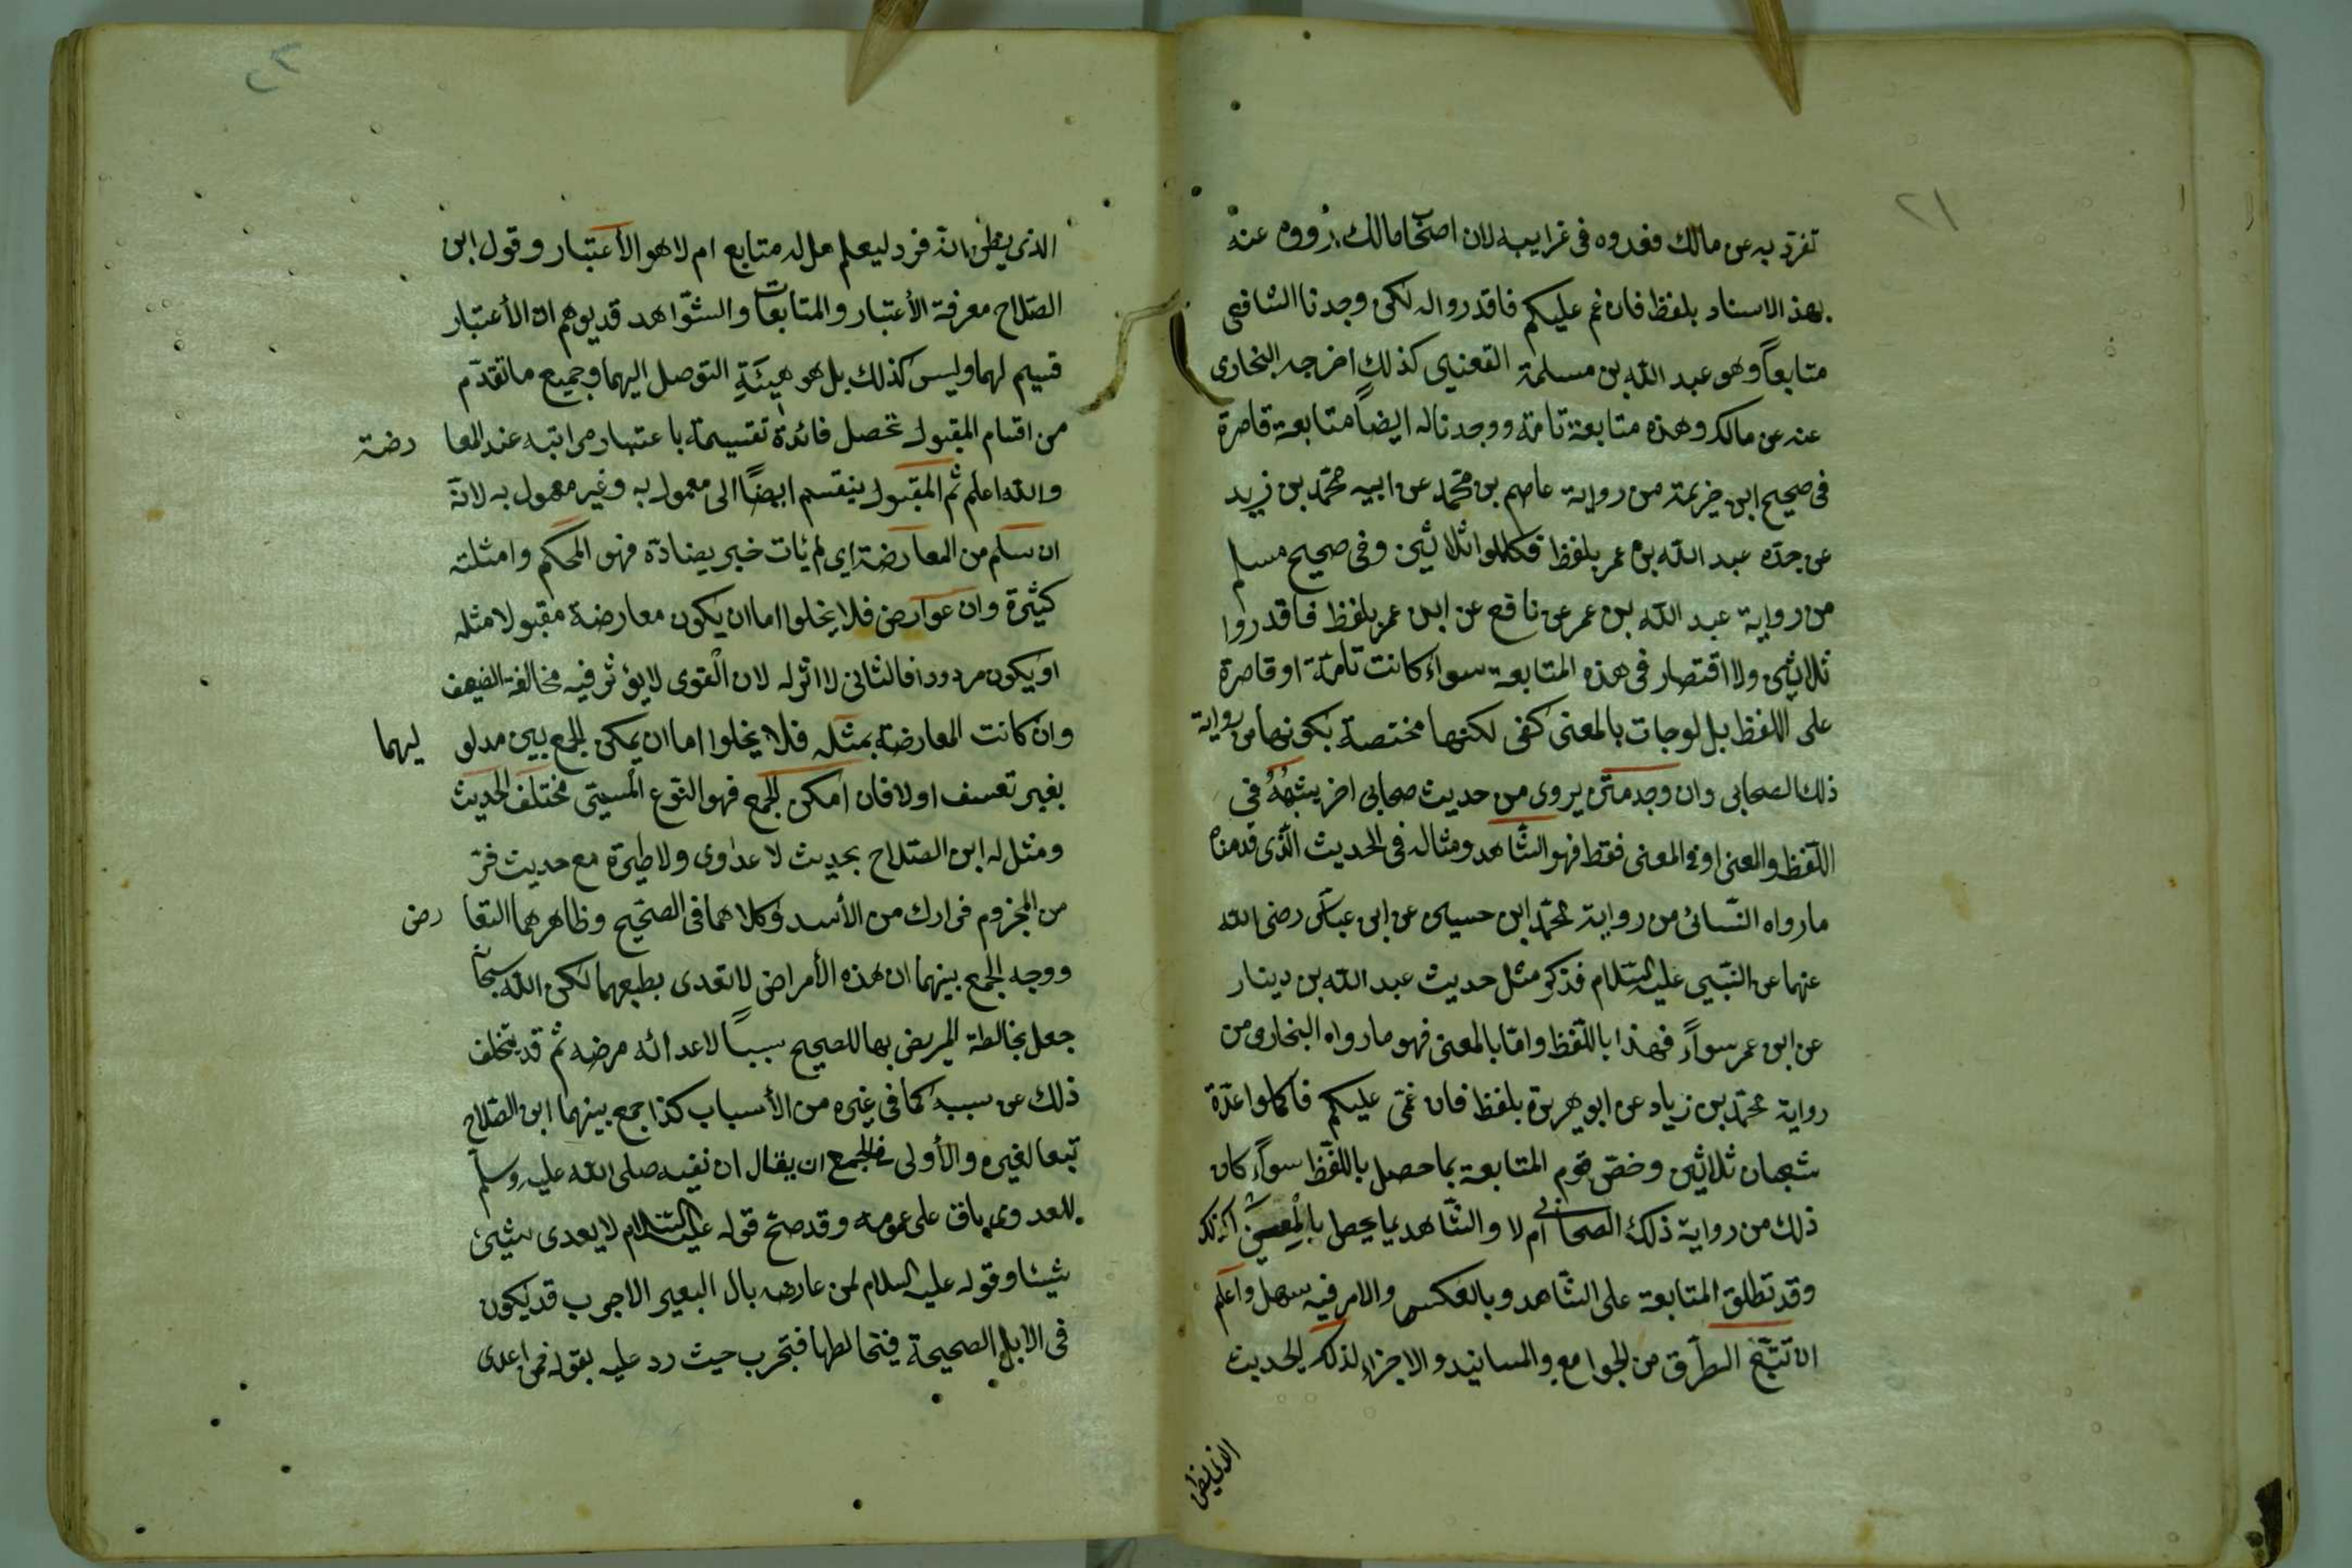 ٢١
تفرد به عن مالك فعدوه في غرايبه لان اصحاب مالك رووه عنه
بهذ الاسناد بلفظ فان غم عليكم فاقدروا له لكن وجدنا الشافعي
متابعاً وهو عبد الله بن مسلمة القعنبي كذلك اخرجه البخاري
عنه عن مالك وهذه متابعة تامة ووجدنا له ايضاً متابعة قاصرة
في صحيح ابن خزيمة من رواية عاصم بن محمّد عن ابيه محمّد بن زيد
عن جدّه عبد الله بن عمر بلفظ فكملوا ثلاثين وفي صحيح مسلم
من رواية عبد الله بن عمر عن نافع عن ابن عمر بلفظ فاقدروا
ثلاثين ولا اقتصار في هذه المتابعة سواء كانت تامّة او قاصرة
على اللفظ بل لو جات بالمعنى كفى لكنها مختصة بكونها من رواية
ذلك الصحابي وان وجد متن يروى من حديث صحابي اخر يشبهُهُ في
اللّفظ والمعنى او في المعنى فقط فهو الشّاهد ومثاله في الحديث الّذي قدمناه
ما رواه النّسائى من رواية محمّد ابن حسين عن ابن عبّاس رضي الله
عنهما عن النّبي عليه السّلام فذكر مثل حديث عبد الله بن دينار
عن ابن عمر سوآءً فهذا باللّفظ وامّا بالمعنى فهو ما رواه البخارى من
رواية محمّد بن زياد عن ابو هريرة بلفظ فان غمّى عليكم فاكملوا عدّة
شعبان ثلاثين وخصّ قوم المتابعة بما حصل باللّفظ سوآء كان
ذلك من رواية ذلك الصحابي ام لا والشّاهد بما يحصل بالمعنى كذلك
وقد تطلق المتابعة على الشّاهد وبالعكس والامر فيه سهل واعلم
ان تتبّع الطّرق من الجوامع والمسانيد والاجزاء لذلك الحديث
الذى يظن
٢٢
الذى يظن انه فرد ليعلم هل له متابع ام لا هو الأعتبار وقول ابن
الصّلاح معرفة الأعتبار والمتابعات والشّواهد قد يوهم ان الأعتبار
قسيم لهما وليس كذلك بل هو هيئة التوصل اليهما وجميع ما تقدّم
من اقسام المقبول تحصل فائدة تقسيمه باعتبار مراتبه عند المعا رضة
والله اعلم ثم المقبول ينقسم ايضًا الى معمول به وغير معمول به لانّه
ان سلم من المعارضة اي لم يأت خبر يضادّه فهو المحكم وامثلته
كثيرة وان عوارض فلا يخلوا اما ان يكون معارضة مقبولا مثله
او يكون مردودا فالثاني لا اثر له لان القوى لا يؤثر فيه مخالفة الضعيف
وان كانت المعارضة بمثله فلا يخلوا اما ان يمكن الجمع بين مدلو ليهما
بغير تعسف اولا فان امكن الجمع فهو النّوع المسمّى مختلف الحديث
ومثل له ابن الصّلاح بحديث لا عداوى ولا طيرة مع حديث فرّ
من المجزوم فرارك من الأسد وكلاهما في الصحّيح وظاهرهما التعا رض
ووجه الجمع بينهما ان هذه الأمراض لا تعدى بطبعهما لكن الله سبحانه
جعل مخالطة المريض بها للصحيح سبباً لاعدائه مرضه ثم قد يتخلف
ذلك عن سببه كما في غيره من الأسباب كذا جمع بينهما ابن الصّلاح
تبعا لغيره والأولى في الجمع ان يقال ان نفيه صلى الله عليه وسلم
للعدوى باق على عمومه وقد صح قوله عليه السّلام لا يعدى شيئ
شيئا وقوله عليه السلام لمن عارضه بال البعير الاجرب قد يكون
فى الابل الصحيحة فيخالطها فتجرب حيث رد عليه بقوله فمن اعدى